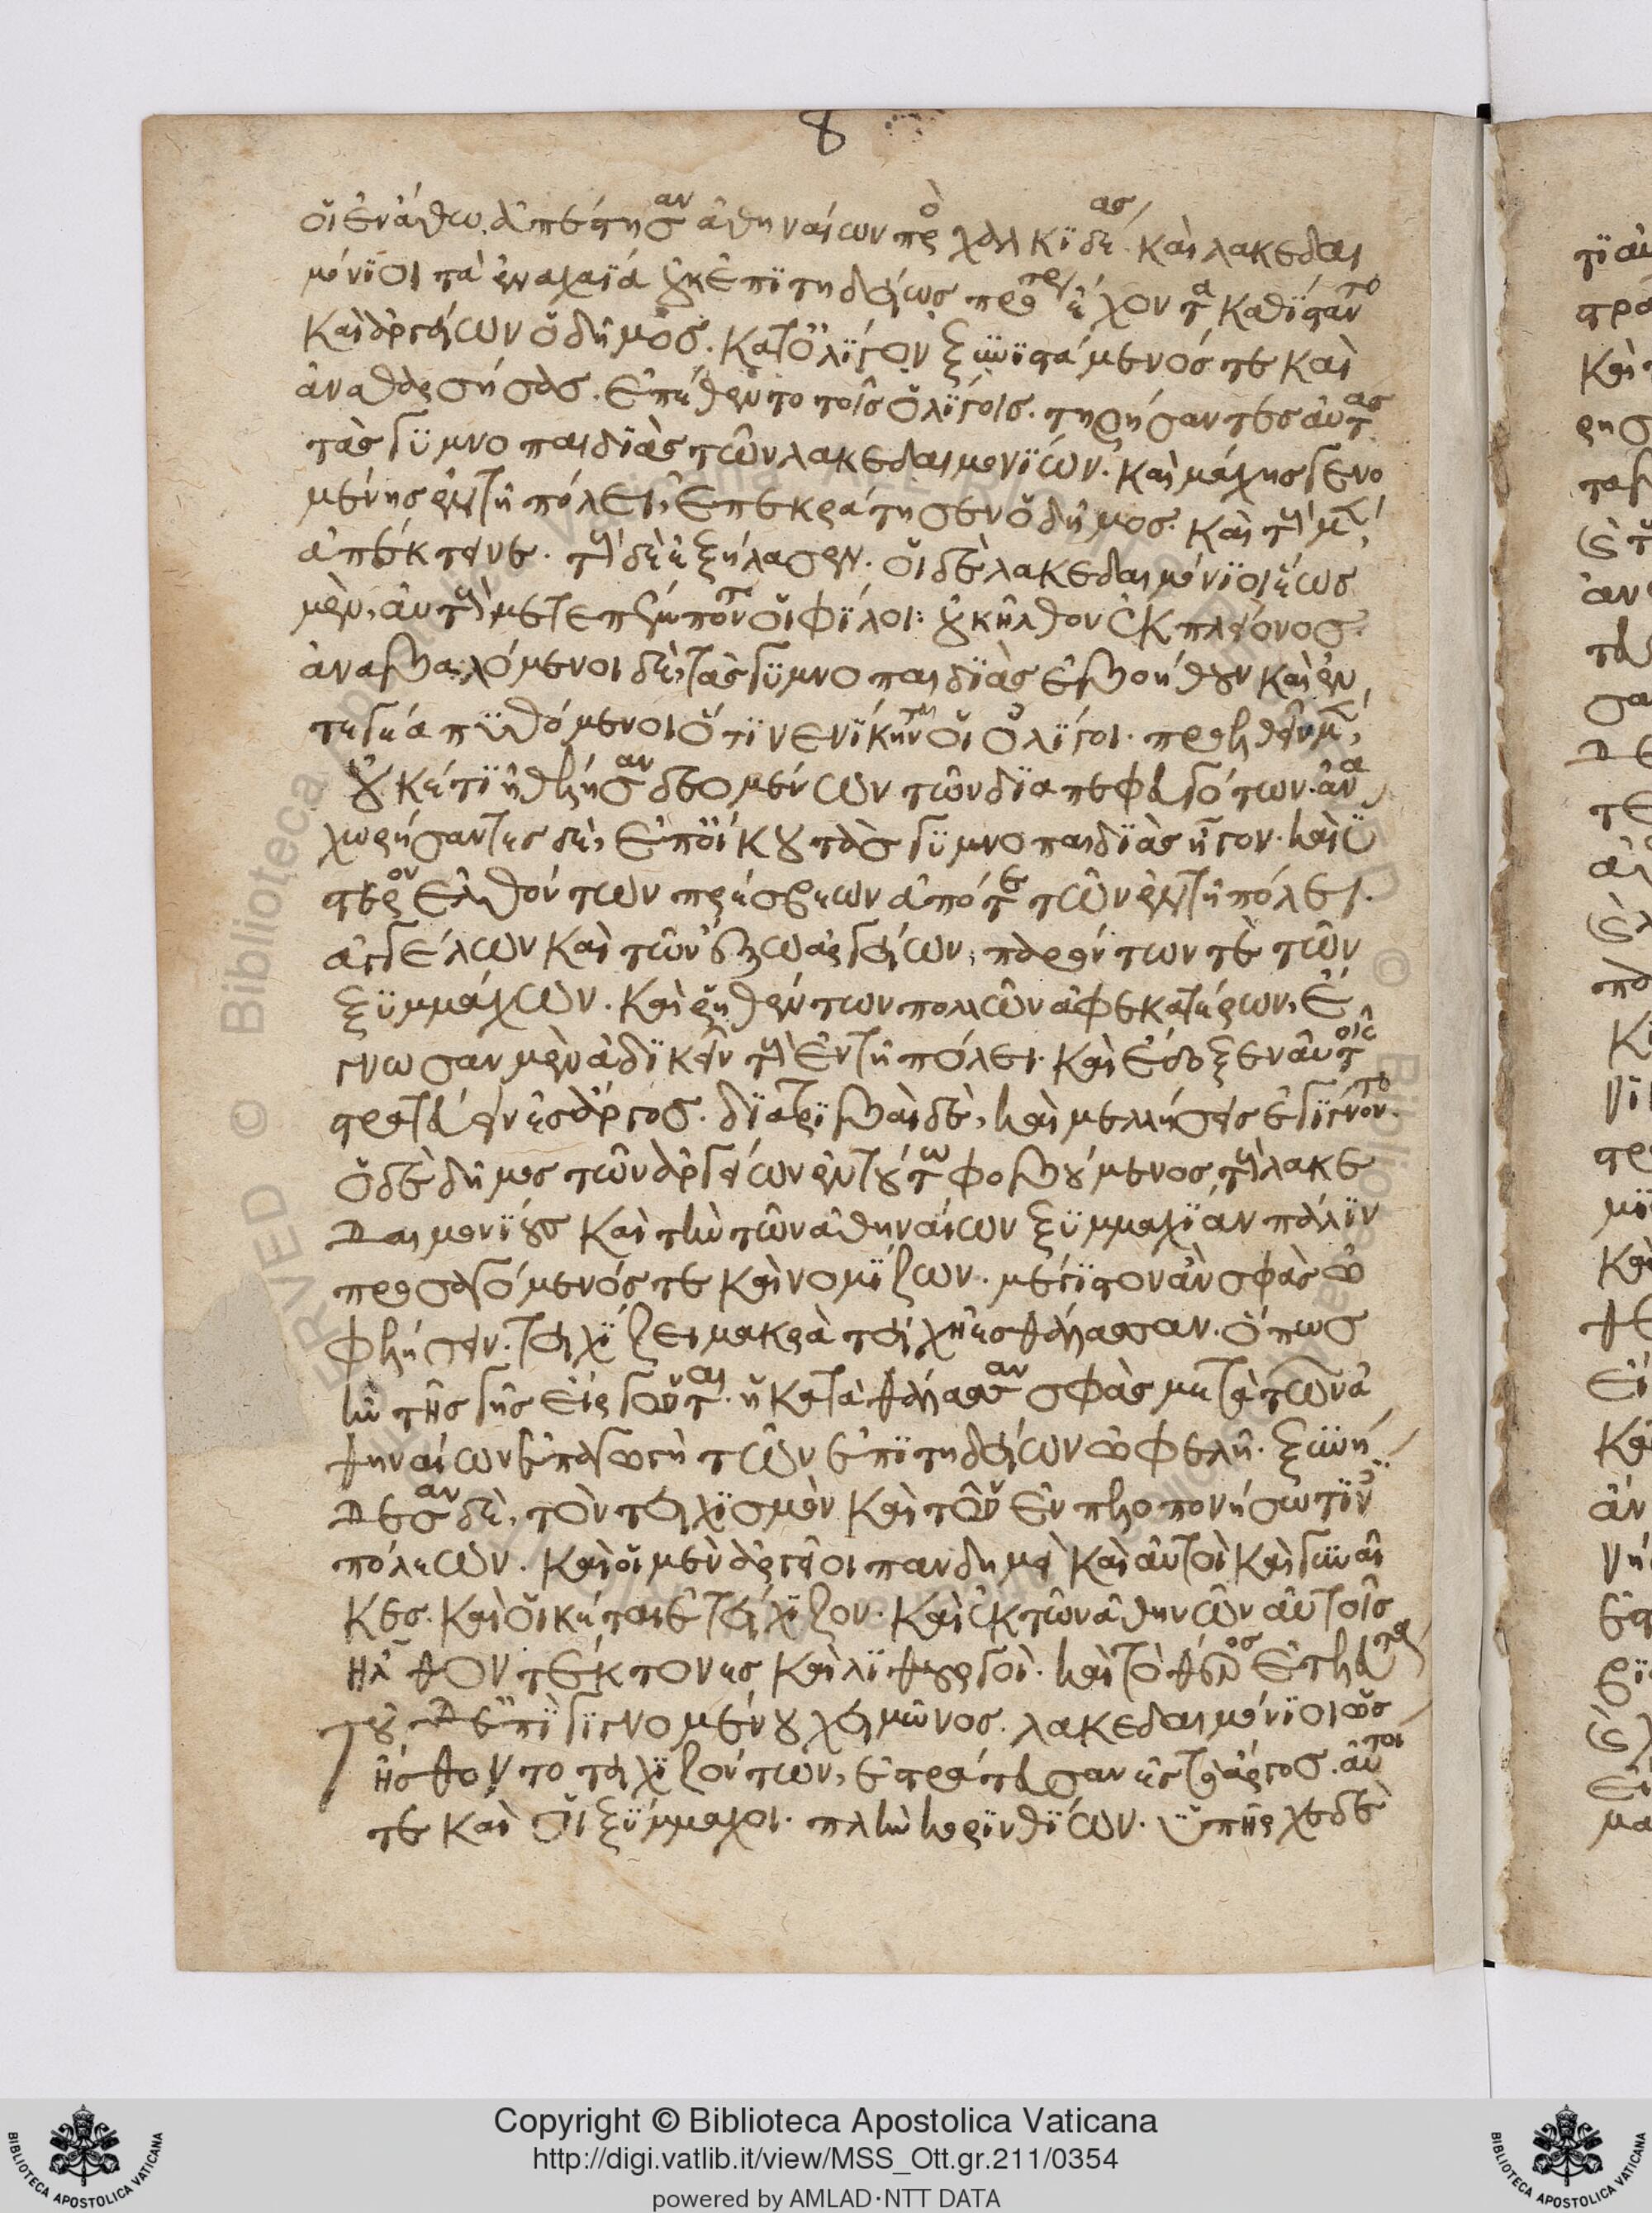 οἱ ἐν ἄθω ἀπέστησαν ἀθηναίων πρὸς χαλκιδέας· καὶ λακεδαι
μόνιοι τὰ ἐν ἀχαΐα οὐκ ἐπιτηδείως πρότερον ἔχοντα καθίσταντο
καὶ ἀργείων ὁ δῆμος· κατ' ὀλίγον ξυνιστάμενός τε καὶ
ἀναθαρσήσας· ἐπέθεντο τοῖς ὀλίγοις· τηρήσαντες αὐτὰς
τὰς γυμνοπαιδιὰς τῶν λακεδαιμονίων· καὶ μάχης γενο
μένης ἐν τῆ πόλει, ἐπεκράτησεν ὁ δῆμος· καὶ τοὺς μὲν
ἀπέκτεινε· τοὺς δὲ ἐξήλασεν· οἱ δὲ λακεδαιμόνιοι ἕως
μὲν, αὐτοὺς μετεπέμποντο οἱ φίλοι: οὐκ ἦλθον ἐκ πλείονος·
ἀναβαλόμενοι δὲ, τὰς γυμνοπαιδιὰς ἐβοήθουν καὶ ἐν
τεγέα πυθόμενοι ὅτι νενίκηνται οἱ ὀλίγοι· προελθεῖν μὲν,
οὐκέτι ἠθέλησαν δεομένων τῶν διαπεφευγότων· ἀνα
χωρήσαντες δὲ, ἐπ' οἴκου τὰς γυμνοπαιδιὰς ἦγον· καὶ ὕ
στερον ἐλθόντων πρέσβεων ἀπό τε τῶν ἐν τῆ πόλει
ἀγγέλων καὶ τῶν ἔξω ἀργείων, παρόντων τὲ τῶν
ξυμμάχων· καὶ ῥηθέντων πολλῶν ἀφ' ἑκατέρων, ἔ
γνωσαν μὲν ἀδικεῖν τοὺς ἐν τῆ πόλει· καὶ ἔδοξεν αὐτοῖς
στρατεύειν ἐς ἄργος· διατριβαὶ δὲ, καὶ μελλήσεις ἐγίγνοντο·
ὁ δὲ δῆμος τῶν ἀργείων ἐν τούτω φοβούμενος τοὺς λακε
δαιμονίους καὶ τὴν τῶν ἀθηναίων ξυμμαχίαν πάλιν
προσαγόμενός τε καὶ νομίζων· μέγιστον ἂν σφᾶς ὠ
φελήσειν· τειχίζει μακρὰ τείχη ἐς θάλασσαν· ὅπως
ἢν τῆς γῆς εἴργωνται· ἡ κατὰ θάλασσαν σφᾶς μετὰ τῶν ἀ
θηναίων ἐπαγωγὴ τῶν ἐπιτηδείων ὠφελῆ· ξυνή
δεσαν δὲ, τὸν τειχισμὸν καὶ τῶν ἐν πελοποννήσω τινὲς
πόλεων· καὶ οἱ μὲν ἀργεῖοι πανδημεὶ καὶ αὐτοὶ καὶ γυναῖ
κες· καὶ οἰκέται ἐτείχιζον· καὶ ἐκ τῶν ἀθηνῶν αὐτοῖς
ἦλθον τέκτονες καὶ λιθουργοὶ· καὶ τὸ θέρος ἐτελεύτα
τοῦ δ' ἐπιγιγνομένου χειμῶνος· λακεδαιμόνιοι ὡς
ἤσθοντο τειχιζόντων, ἐστράτευσαν ἐς τὸ ἄργος· αὐτοί
τε καὶ οἱ ξύμμαχοι· πλὴν κορινθίων· ὑπῆρχε δὲ
Copyright © Biblioteca Apostolica Vaticana
http://digi.vatlib.it/view/MSS_Ott.gr.211/0354
powered by AMLAD·NTT DATA
BIBLIOTECA APOSTOLICA VATICANA
BIBLIOTECA APOSTOLICA VATICANA